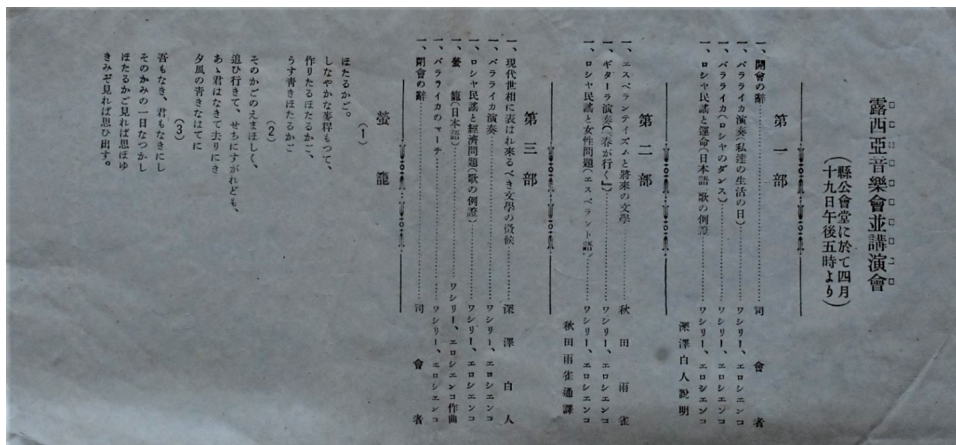 露西亞音樂會並講演會
(縣公會堂に於て四月
十九日午後五時より)
第一部
一、開會の辭……司會者
一、バラライカ演奏(私達の生活の日)……ワシリー、エロシエンコ
一、バラライカ(ロシヤのダンス)……ワシリー、エロシエンコ
一、ロシヤ民謠と運命(日本語 歌の例證……ワシリー、エロシエンコ
深澤白人說明
第二部
一、エスペランテイズムと將來の文學……秋田雨雀
一、ギターラ演奏(『春が行く』)……ワシリー、エロシエンコ
一、ロシヤ民謠と女性問題(エスペラント語)……ワシリー、エロシエンコ
秋田雨雀通譯
第三部
一、現代世相に表はれ來るべき文學の徵候……深澤白人
一、バラライカ演奏……ワシリー、エロシエンコ
一、ロシヤ民謠と經濟問題(歌の例證)……ワシリー、エロシエンコ
一、螢籠(日本語)……ワシリー、エロシエンコ作曲
一、バラライカのマーチ……ワシリー、エロシエンコ
一、閉會の辭……司會者
螢籠
(1)
ほたるかご。
しなやかな麥稈もつて、
作りたるほたるかご、
うす青きほたるかご
(2)
そのかごのえまほしく、
追ひ行きて、せちにすがれども、
あゝ君はなきて去りにき
夕風の青きなはてに
(3)
吾もなき、君もなきにし
そのかみの一日なつかし
ほたるかご見れば思ほゆ
きみぞ見れば思ひ出す。